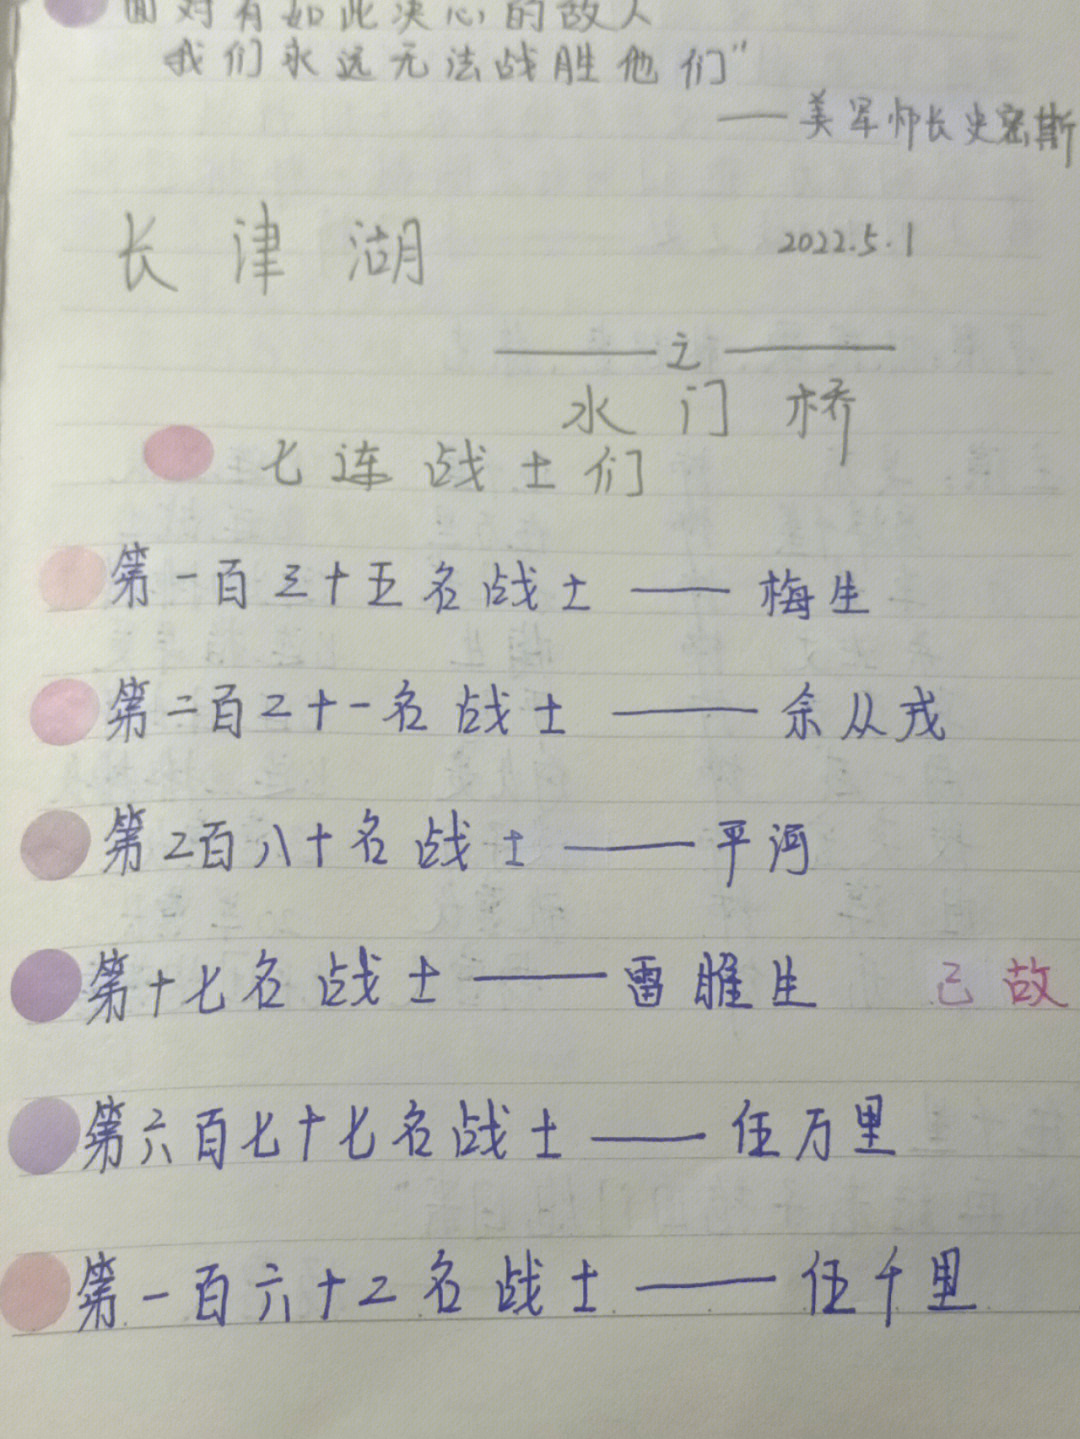 面对有如此决心的敌人
我们永远无法战胜他们"
——美军师长史密斯
长津湖 2022.5.1
——之——
水门桥
七连战士们
第一百三十五名战士——梅生
第二百二十一名战士——余从戎
第二百八十名战士——平河
第十七名战士——雷睢生 已故
第六百七十七名战士——伍万里
第一百六十二名战士——伍千里